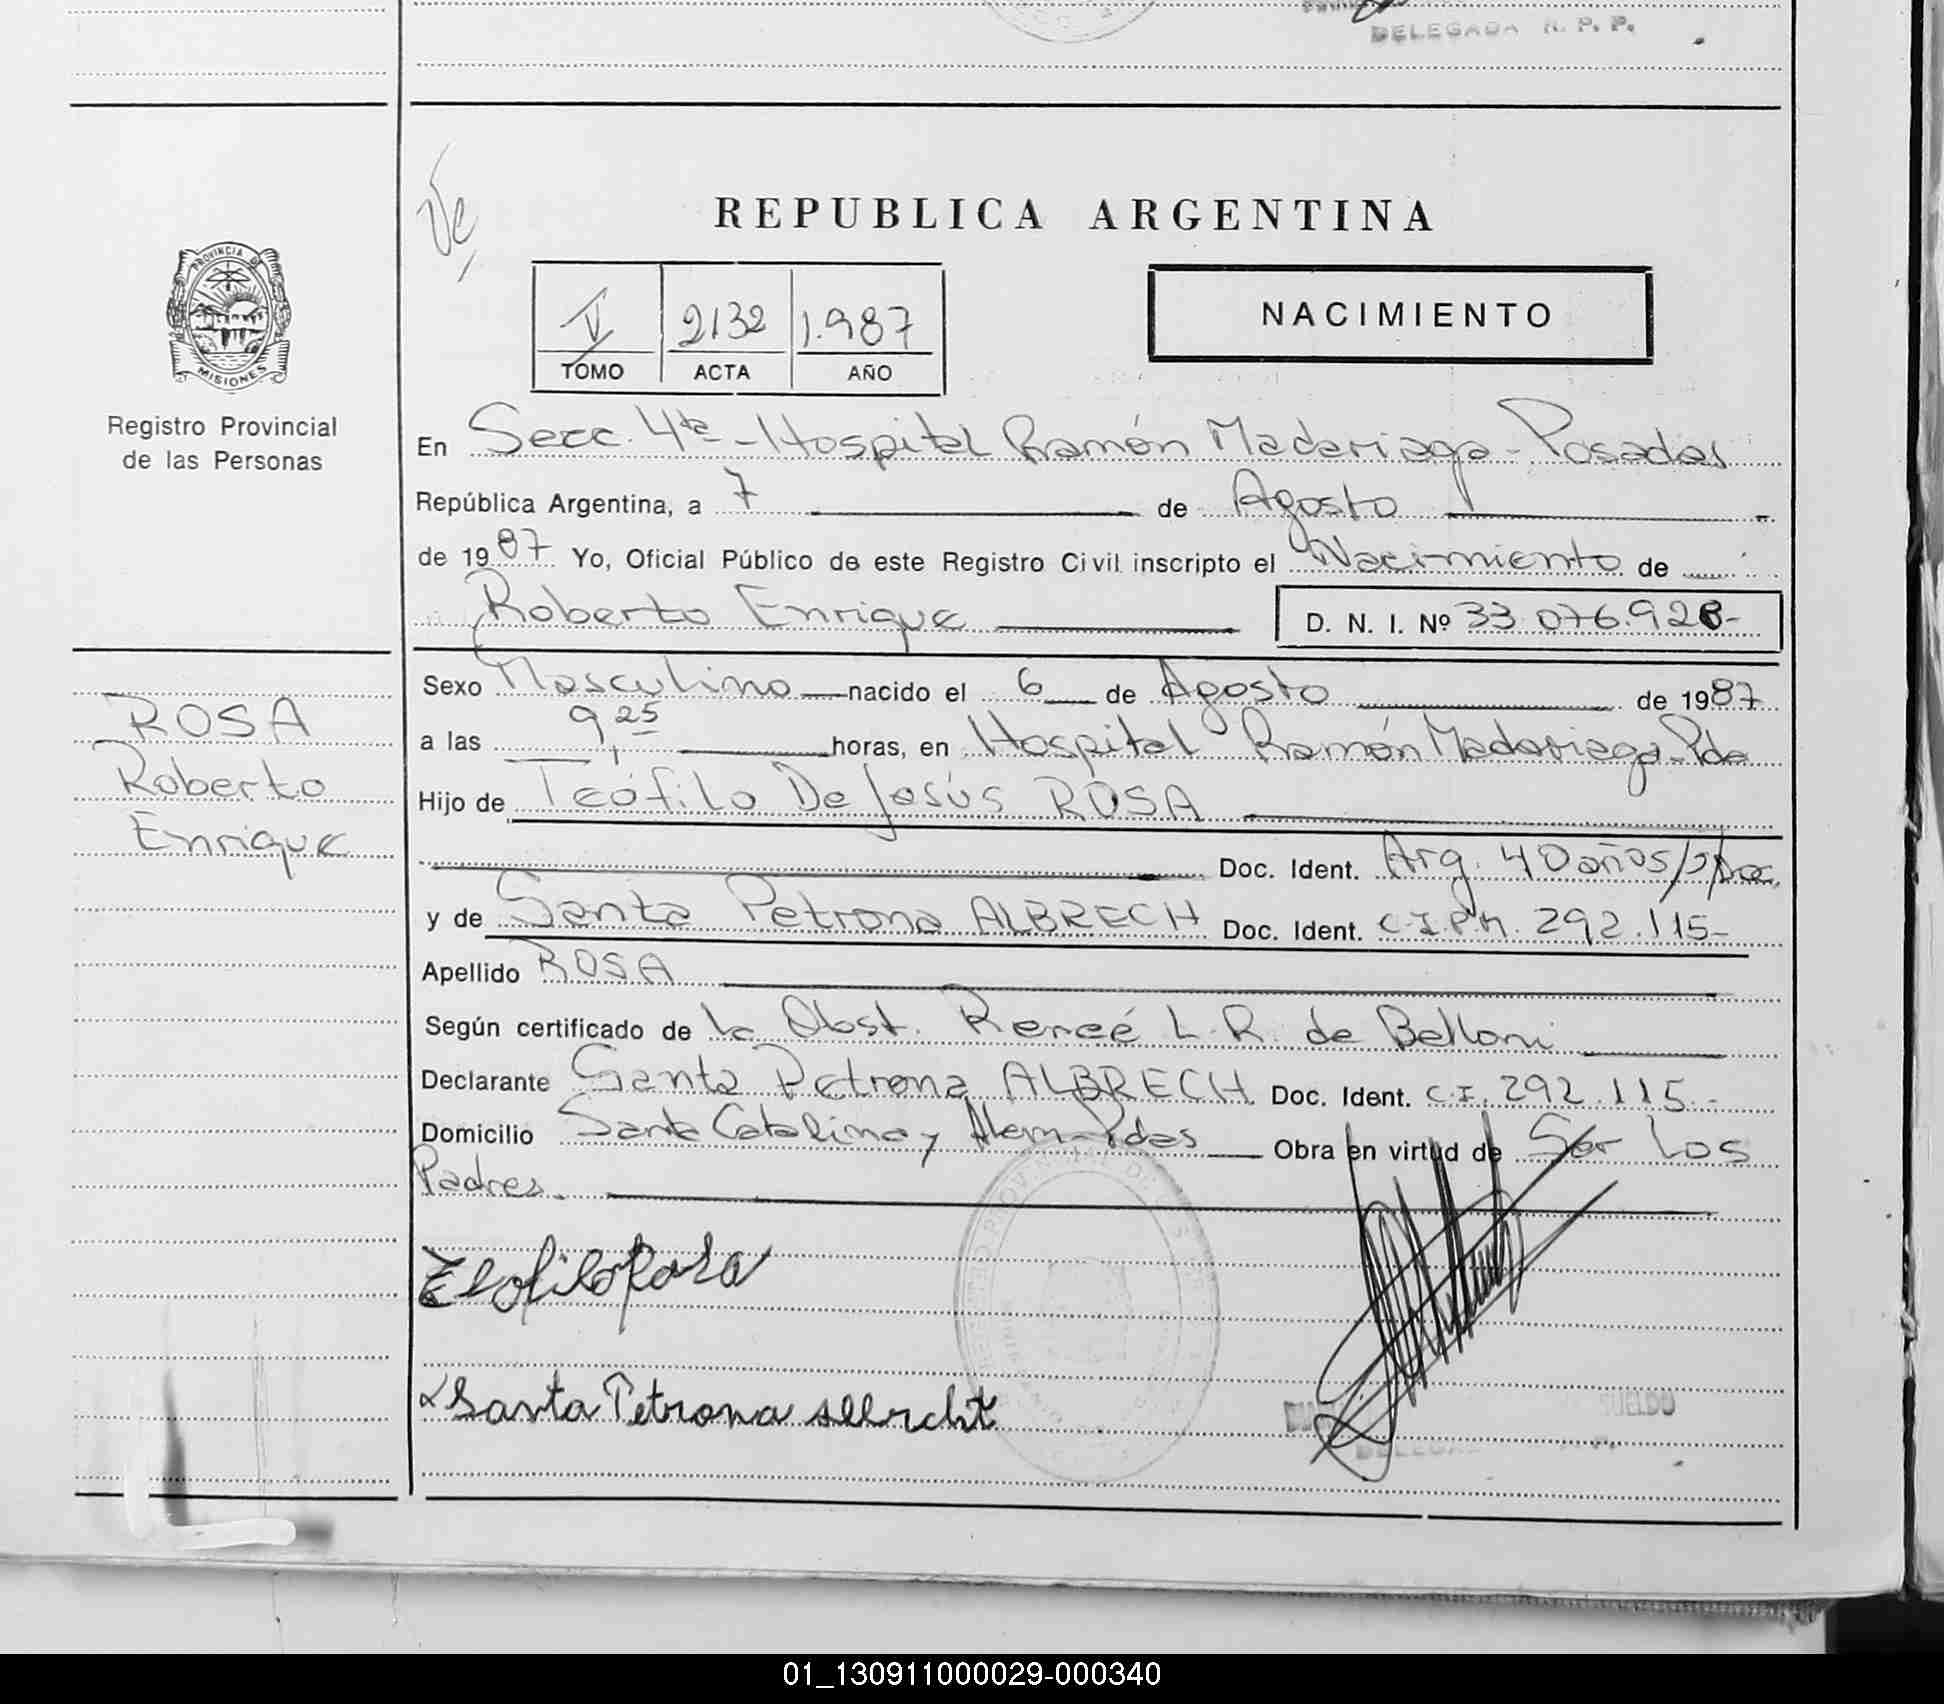 DELEGADA R. P. P.
Ve
REPUBLICA ARGENTINA
PROVINCIA DE
MISIONES
Registro Provincial
de las Personas
V 2132 1.987
TOMO ACTA AÑO
NACIMIENTO
En Secc. 4ta - Hospital Ramón Madariaga - Posadas
República Argentina, a 7 de Agosto
de 1987 Yo, Oficial Público de este Registro Civil inscripto el Nacimiento de
Roberto Enrique D. N. I. Nº 33.076.928-
Sexo Masculino nacido el 6 de Agosto de 1987
a las 9,25 horas, en Hospital Ramón Madariaga - Pdas
Hijo de Teófilo De Jesús ROSA
Doc. Ident. Arg. 40 años/s/Doc.
y de Santa Petrona ALBRECH Doc. Ident. C.I.P.M. 292.115-
Apellido ROSA
Según certificado de la Obst. Reneé L. R. de Belloni
Declarante Santa Petrona ALBRECH Doc. Ident. C.I. 292.115.-
Domicilio Santa Catalina y Alem - Pdas Obra en virtud de Ser Los
Padres.
ROSA
Roberto
Enrique
Teofilo Rosa
Santa Petrona Albrcht
SUELDO
01_130911000029-000340